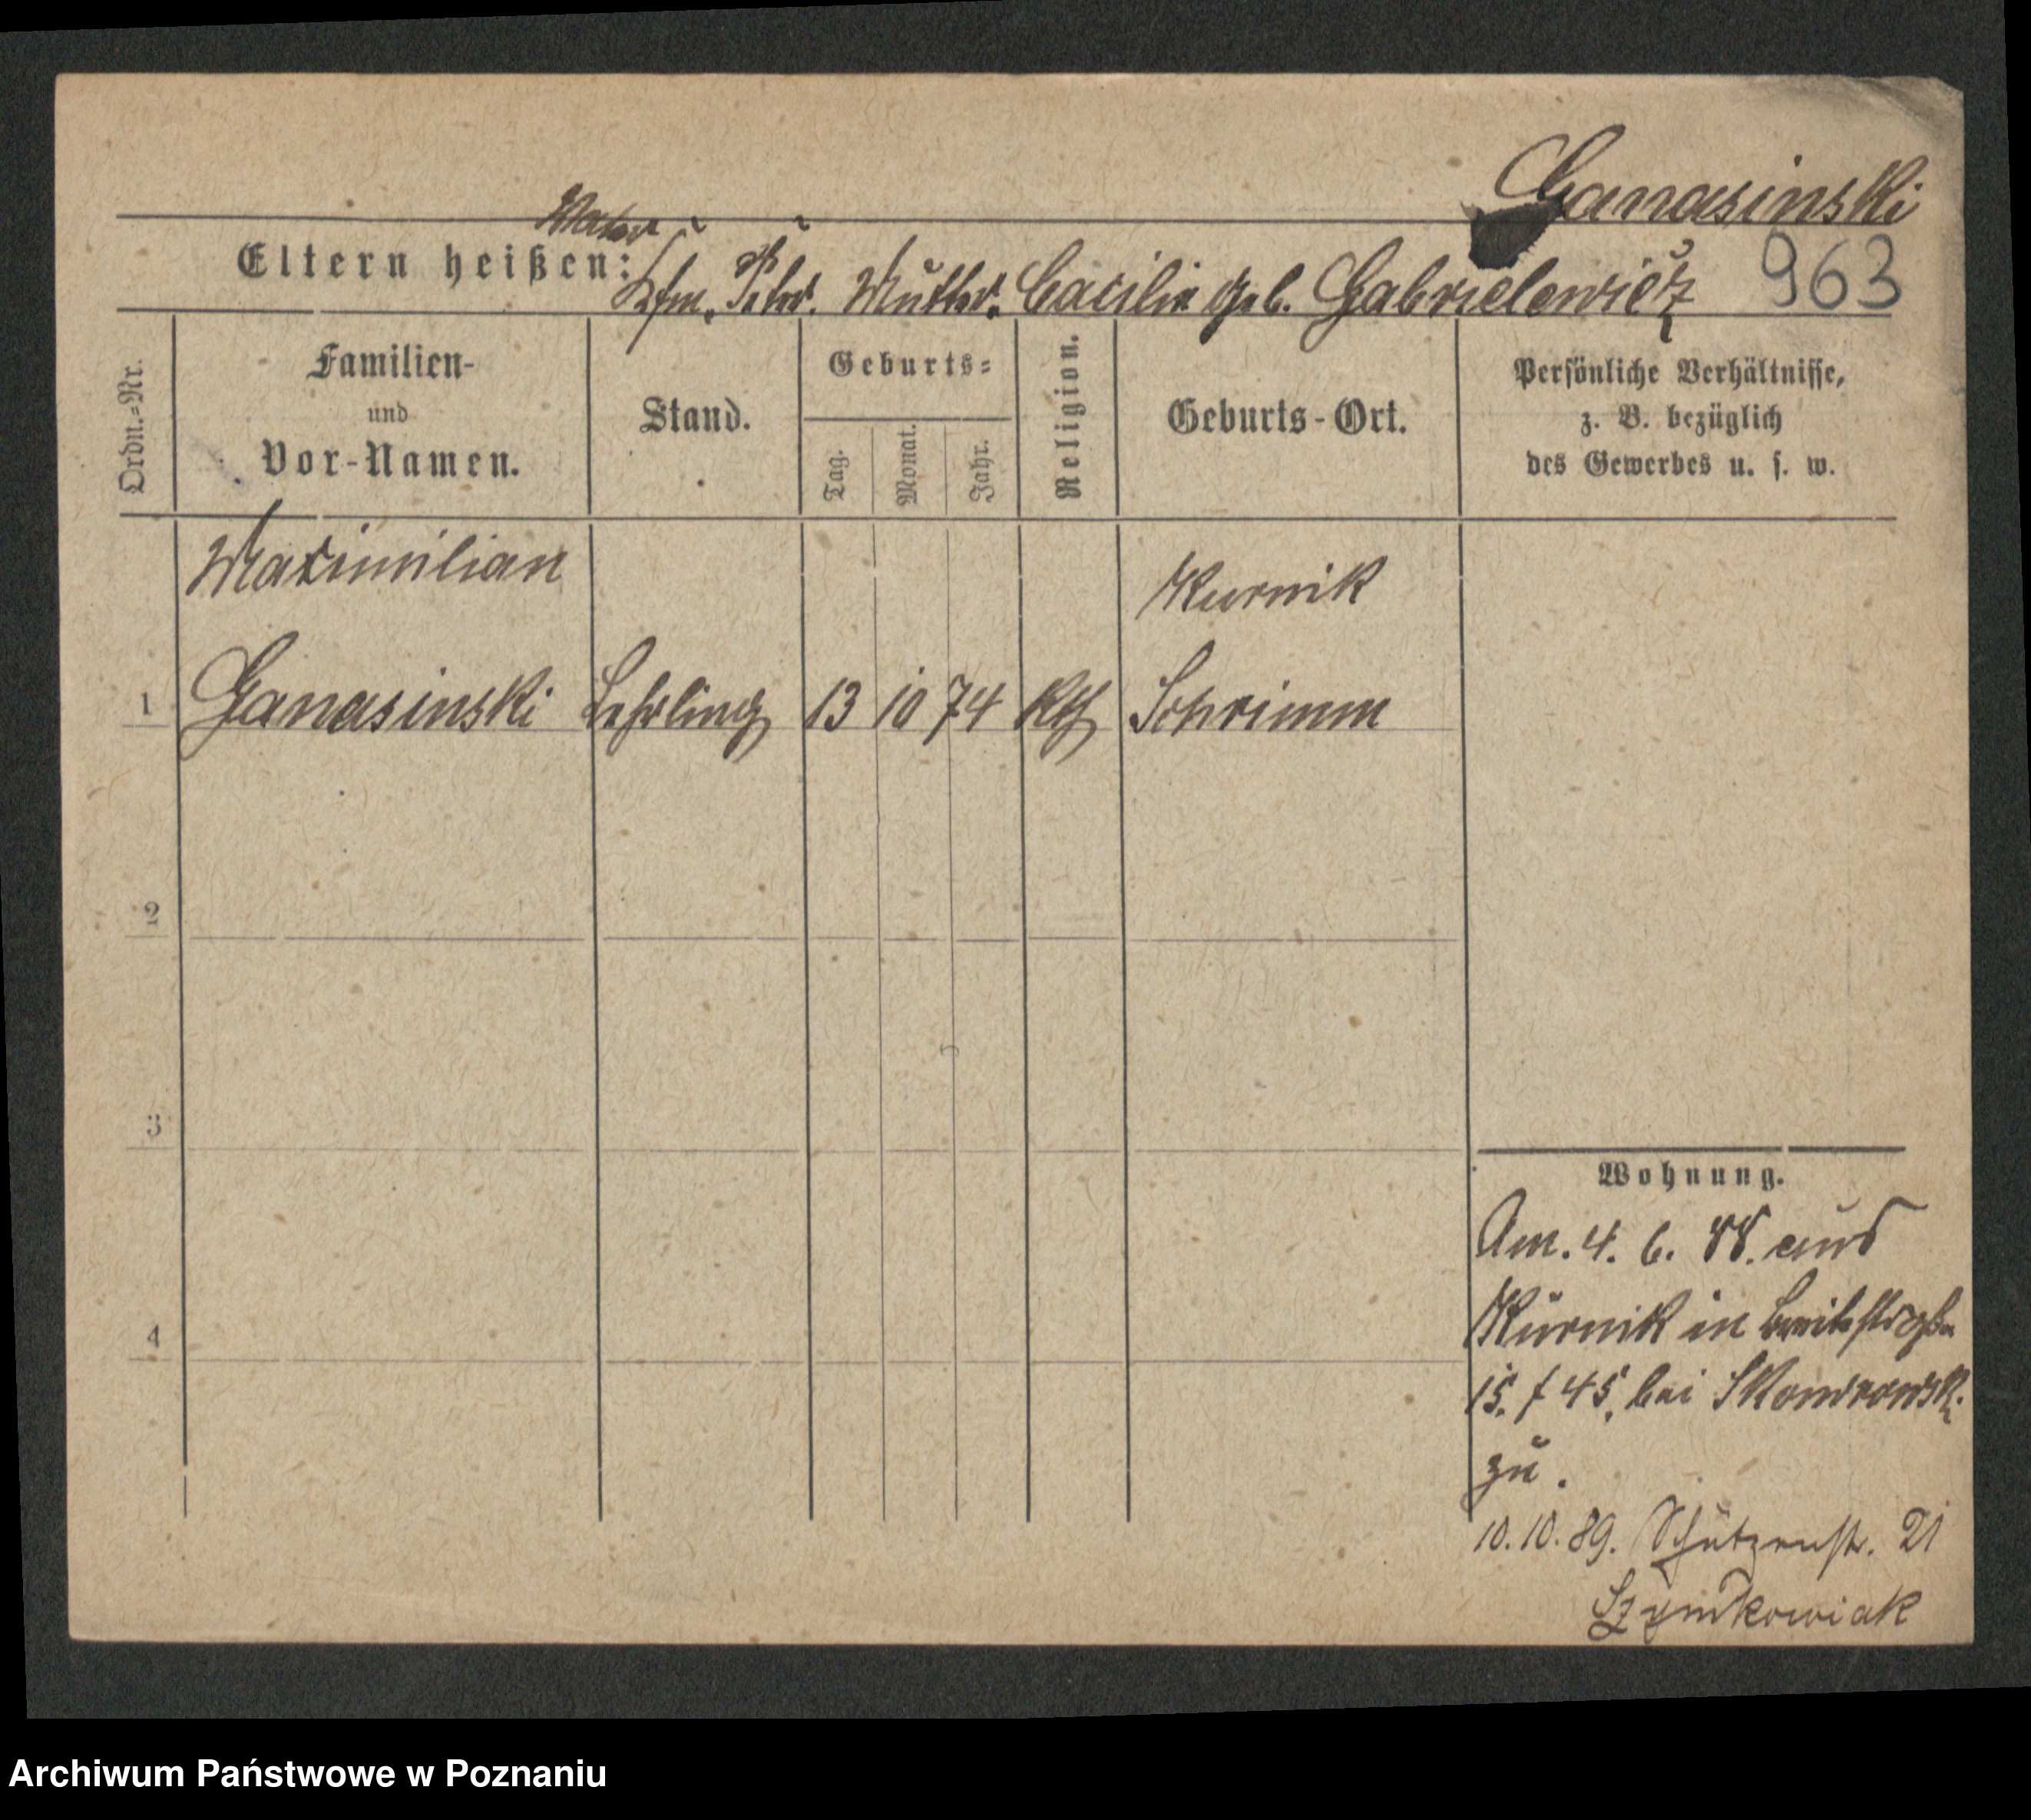 Ganasinski
Vater
Eltern heißen: Kfm. Peter. Mutter. Cacilie geb. Gabrielewicz 963
Ordn.-Nr.
Familien-
und
Vor-Namen.
Stand.
Geburts-
Tag.
Monat.
Jahr.
Religion.
Geburts-Ort.
Persönliche Verhältnisse,
z. B. bezüglich
des Gewerbes u. s. w.
Maximilian
Kurnik
1 Ganasinski Lehrling 13 10 74 kth Schrimm
2
3
4
Wohnung.
Am. 4. 6. 88. aus
Kurnik in Breitestraße
15. f 45, bei Skowronski
zu.
10.10.89. Schützenstr. 21
Szymkowiak
Archiwum Państwowe w Poznaniu